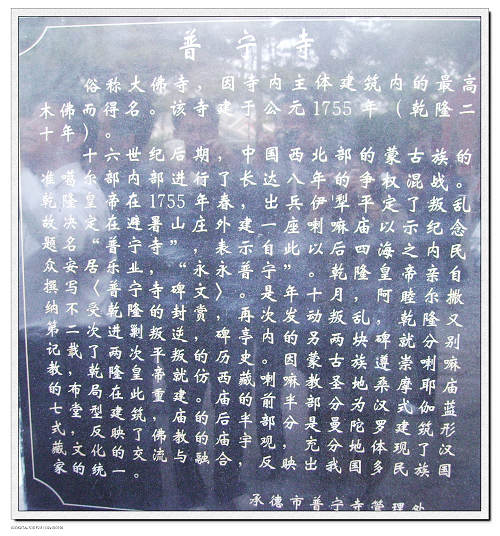 普宁寺
俗称大佛寺，因寺内主体建筑内的最高
木佛而得名。该寺建于公元1755年（乾隆二
十年）。
十六世纪后期，中国西北部的蒙古族的
准噶尔部内部进行了长达八年的争权混战。
乾隆皇帝在1755年春，出兵伊犁平定了叛乱。
故决定在避暑山庄外建一座喇嘛庙以示纪念
题名“普宁寺”，表示自此以后四海之内民
众安居乐业，永永普宁”。乾隆皇帝亲自
撰写〈普宁寺碑文〉。是年十月，阿睦尔撒
纳不受乾隆封赏，再次发动叛乱，乾隆又
第二次进剿叛逆。碑亭内的另两块碑就分别
记载了两次叛的历史。因蒙古族遵崇喇嘛
教，乾隆皇帝就仿西藏喇嘛教圣地桑摩耶庙
的布局在此重建。庙的前半部分为汉地伽蓝
七堂型建筑，庙的后半部分是曼陀罗体建筑形
式，反映了佛教的庙宇，充分体现了汉
藏文化的交流与融合，映出我国多民族国
家的统一。
承德市普宁寺管理处